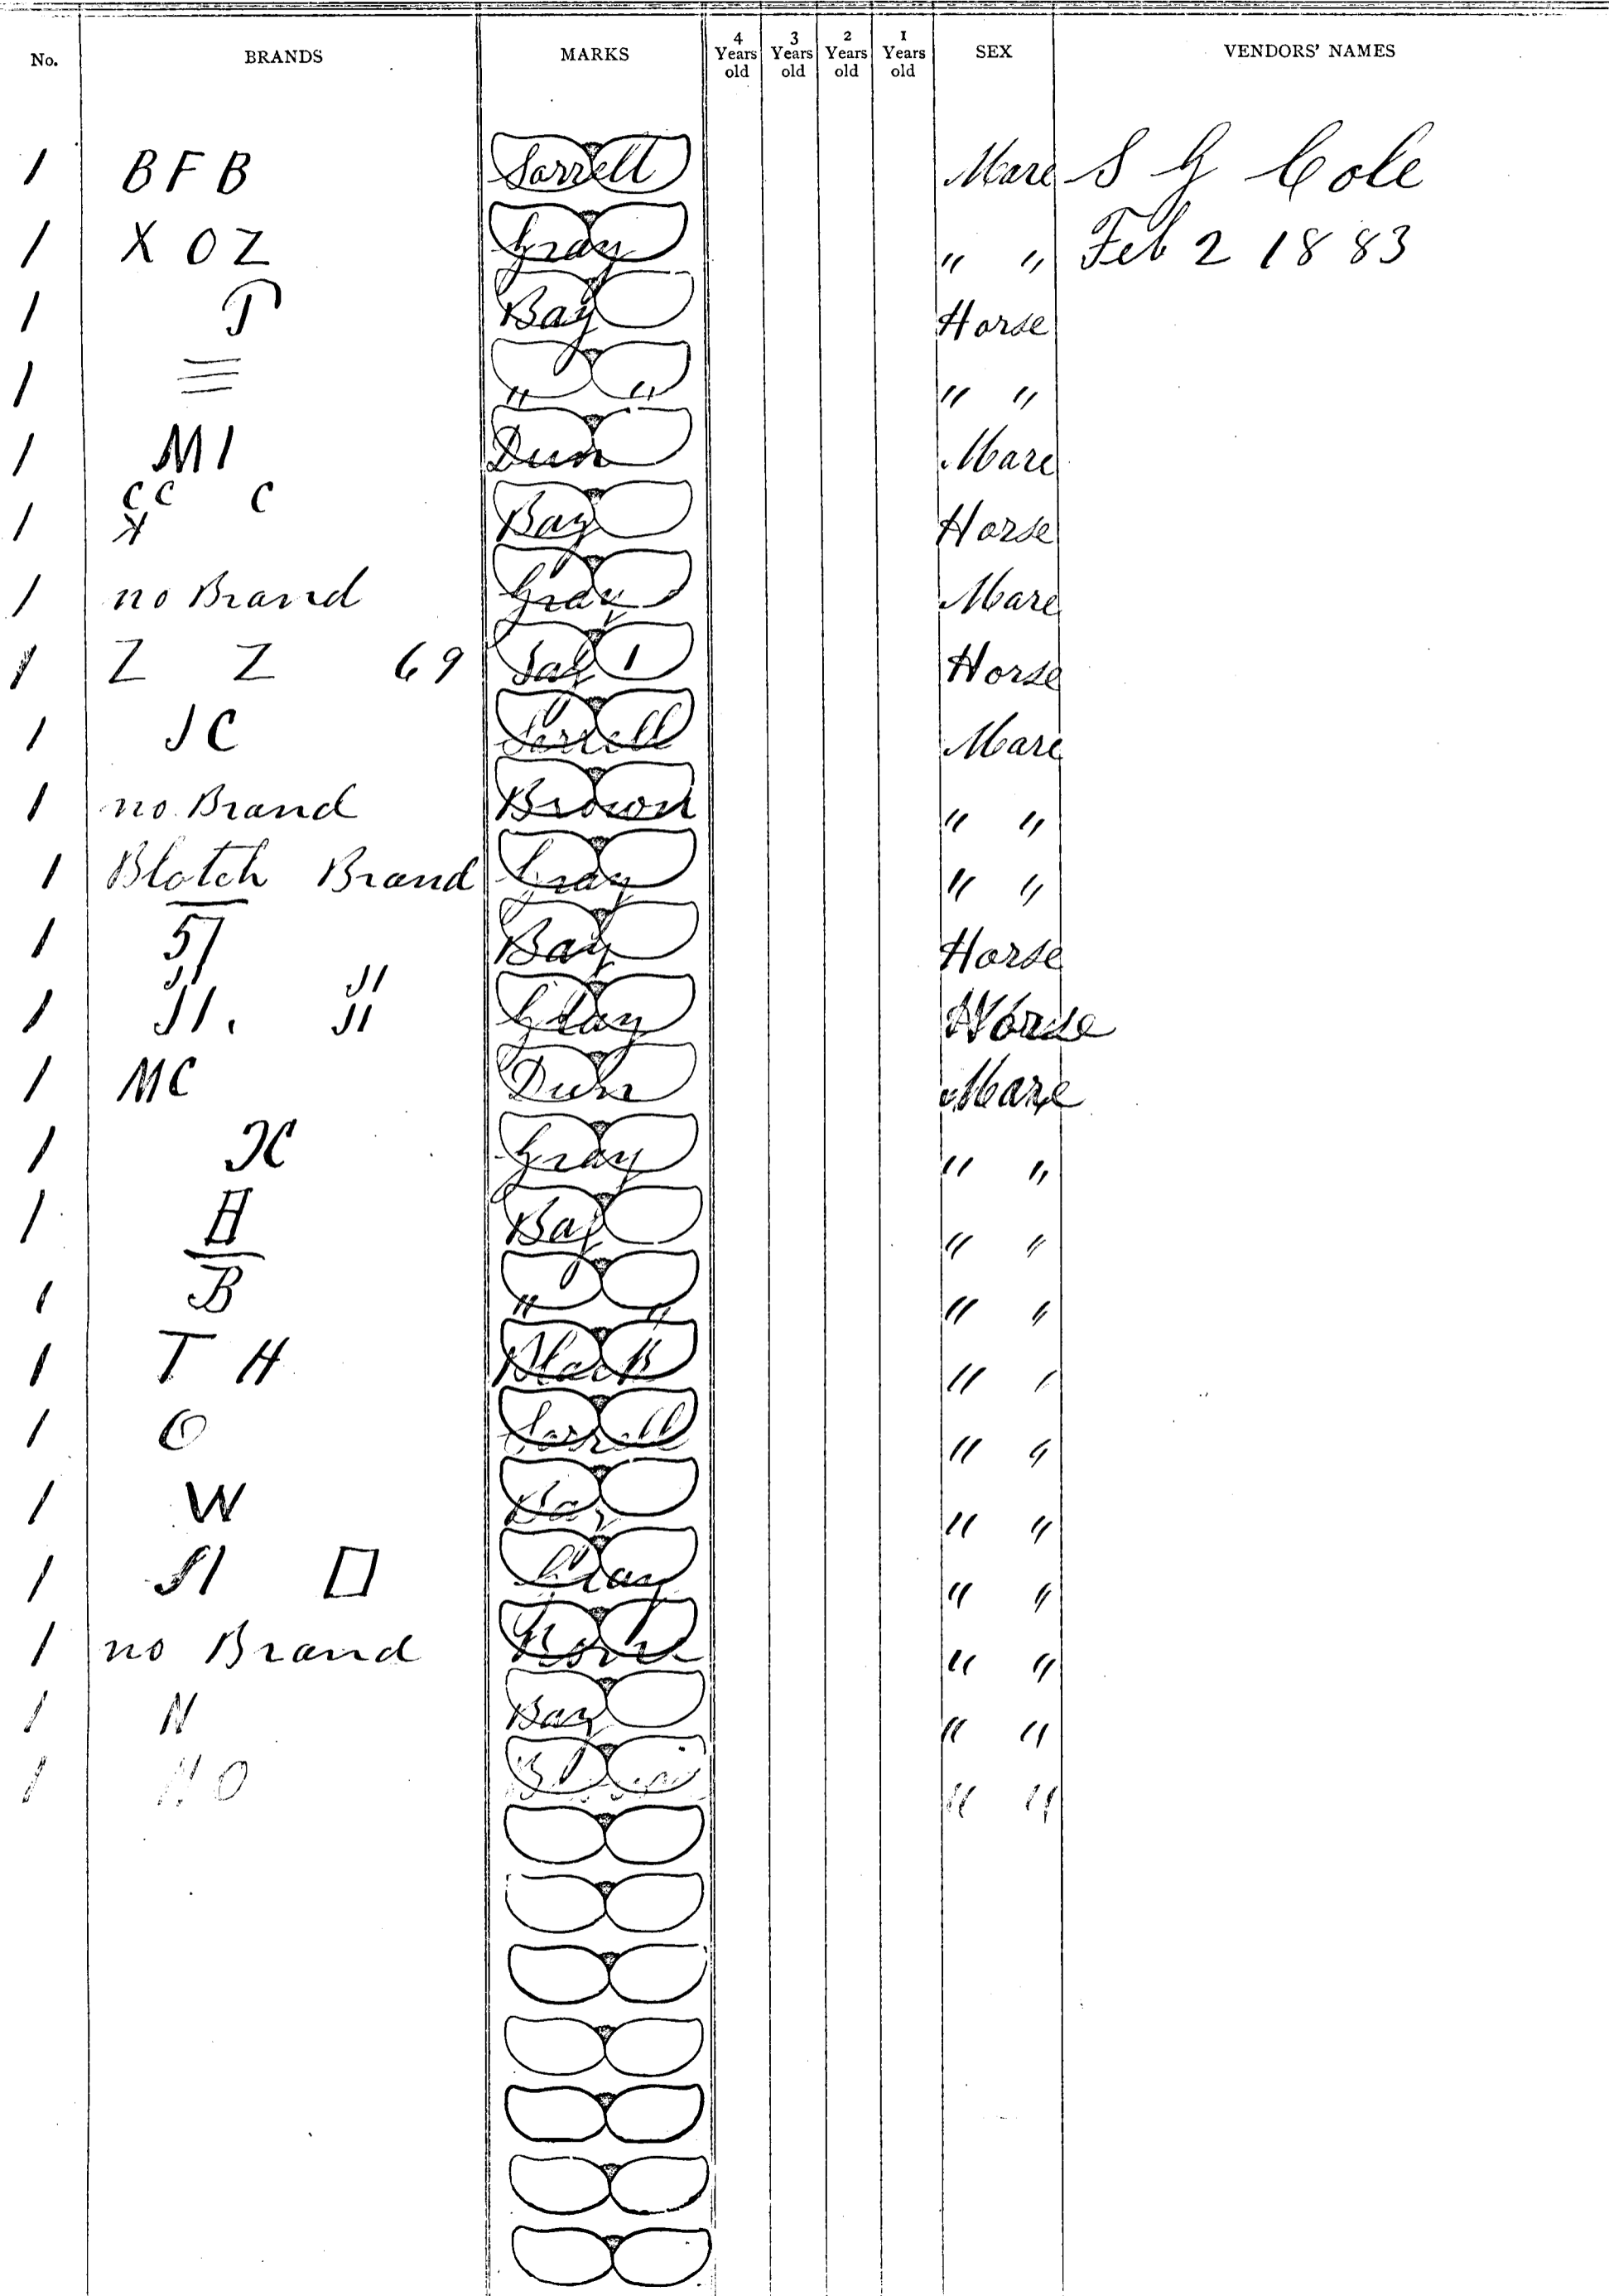 No. BRANDS MARKS 4 Years old 3 Years old 2 Years old 1 Years old SEX VENDORS' NAMES
1 B F B Sorrell Mare S G Cole
1 X O Z Gray " " Feb 2 1883
1 Bay Horse
1 " " " "
1 M I Dun Mare
C C C
1 Bay Horse
1 no Brand Gray Mare
1 Z Z 69 Bay 1 Horse
1 J C Sorrell Mare
1 no Brand Brown " "
1 Blotch Brand Gray " "
1 Bay Horse
JI JI
1 JI. JI Gray Horse
1 MC Dun Mare
1 Gray " "
1 Bay " "
1 B " " " "
1 T H Black " "
1 O Sorrell " "
1 W Bay " "
1 Gray " "
1 no Brand Roan " "
1 N Bay " "
1 " "